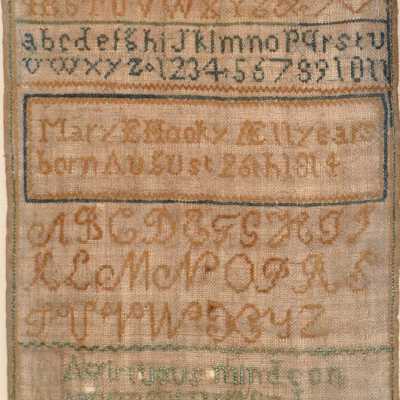 R S T U V W X Y Z
abcdefghijklmnopqrstu
vwxyz 1234567891011
Mary E Hooky Æ 11 years
born August 26th 1814
ABCDEFGHIJ
KLMNOPRS
TUVWXYZ
A virtuous mind